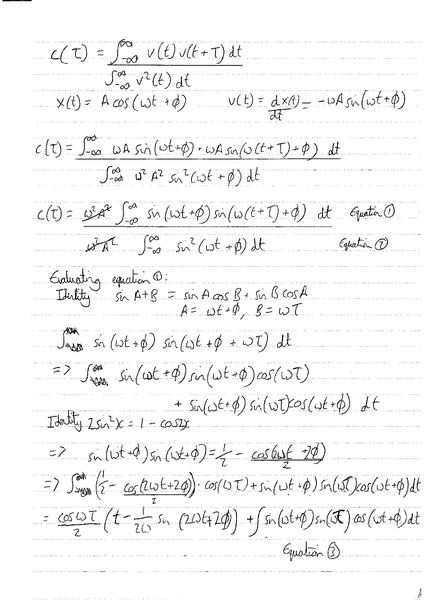 c(τ) = ∫_{-∞}^{∞} v(t) v(t+τ) dt
∫_{-∞}^{∞} v²(t) dt
x(t) = A cos(ωt + φ) v(t) = dx(t)/dt = -ωA sin(ωt+φ)
c(τ) = ∫_{-∞}^{∞} ωA sin(ωt+φ) · ωA sin(ω(t+τ)+φ) dt
∫_{-∞}^{∞} ω² A² sin²(ωt+φ) dt
c(τ) = ω²A² ∫_{-∞}^{∞} sin(ωt+φ) sin(ω(t+τ)+φ) dt Equation ①
ω²A² ∫_{-∞}^{∞} sin²(ωt+φ) dt Equation ②
Evaluating equation ①:
Identity sin A+B = sin A cos B + sin B cos A
A = ωt+φ, B = ωτ
∫ sin(ωt+φ) sin(ωt+φ + ωτ) dt
=> ∫ sin(ωt+φ) sin(ωt+φ) cos(ωτ)
+ sin(ωt+φ) sin(ωτ) cos(ωt+φ) dt
Identity 2sin²x = 1 - cos2x
=> sin(ωt+φ) sin(ωt+φ) = 1/2 - cos(2ωt + 2φ)/2
=> ∫ (1/2 - cos(2ωt+2φ)/2) · cos(ωτ) + sin(ωt+φ) sin(ωτ) cos(ωt+φ) dt
= cosωτ/2 (t - 1/2ω sin (2ωt+2φ)) + ∫ sin(ωt+φ) sin(ωτ) cos(ωt+φ) dt
Equation ③